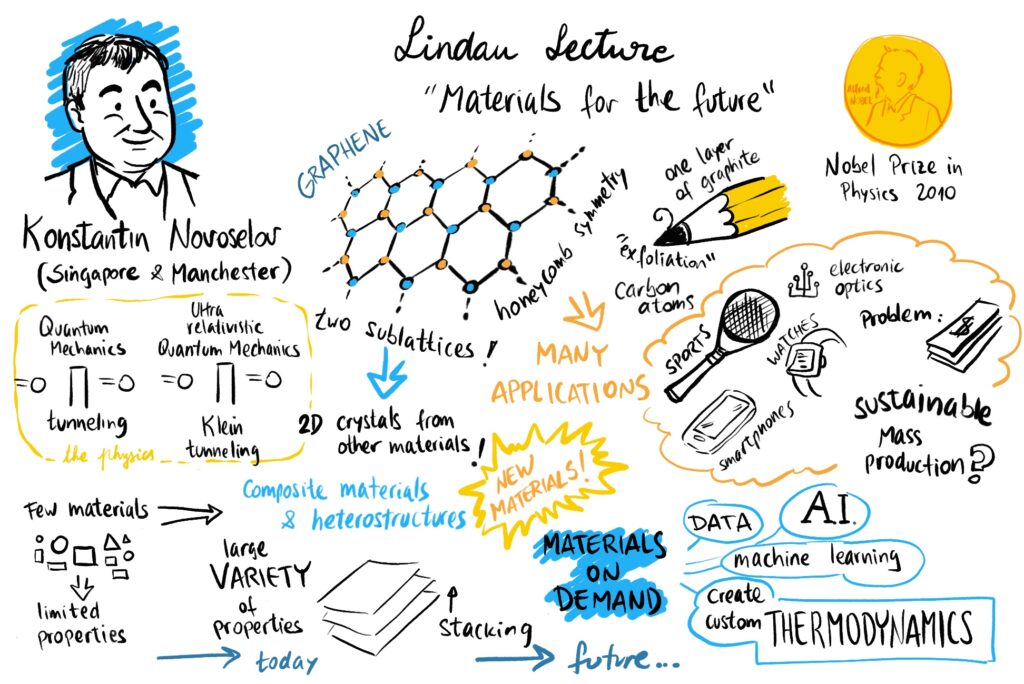 Lindau Lecture
"Materials for the future"
Alfred
NOBEL
Nobel Prize in
Physics 2010
Konstantin Novoselov
(Singapore & Manchester)
GRAPHENE
two sublattices!
honeycomb symmetry
one layer
of graphite
"exfoliation"
carbon
atoms
Quantum
Mechanics
tunneling
Ultra
relativistic
Quantum Mechanics
Klein
tunneling
the physics
2D crystals from
other materials!
MANY
APPLICATIONS
SPORTS
electronic
optics
WATCHES
smartphones
Problem:
$
sustainable
MASS
PRODUCTION?
Composite materials
& heterostructures
NEW
MATERIALS!
Few materials
limited
properties
large
VARIETY
of
properties
stacking
today
future...
MATERIALS
ON
DEMAND
DATA
A.I.
machine learning
create
custom
THERMODYNAMICS